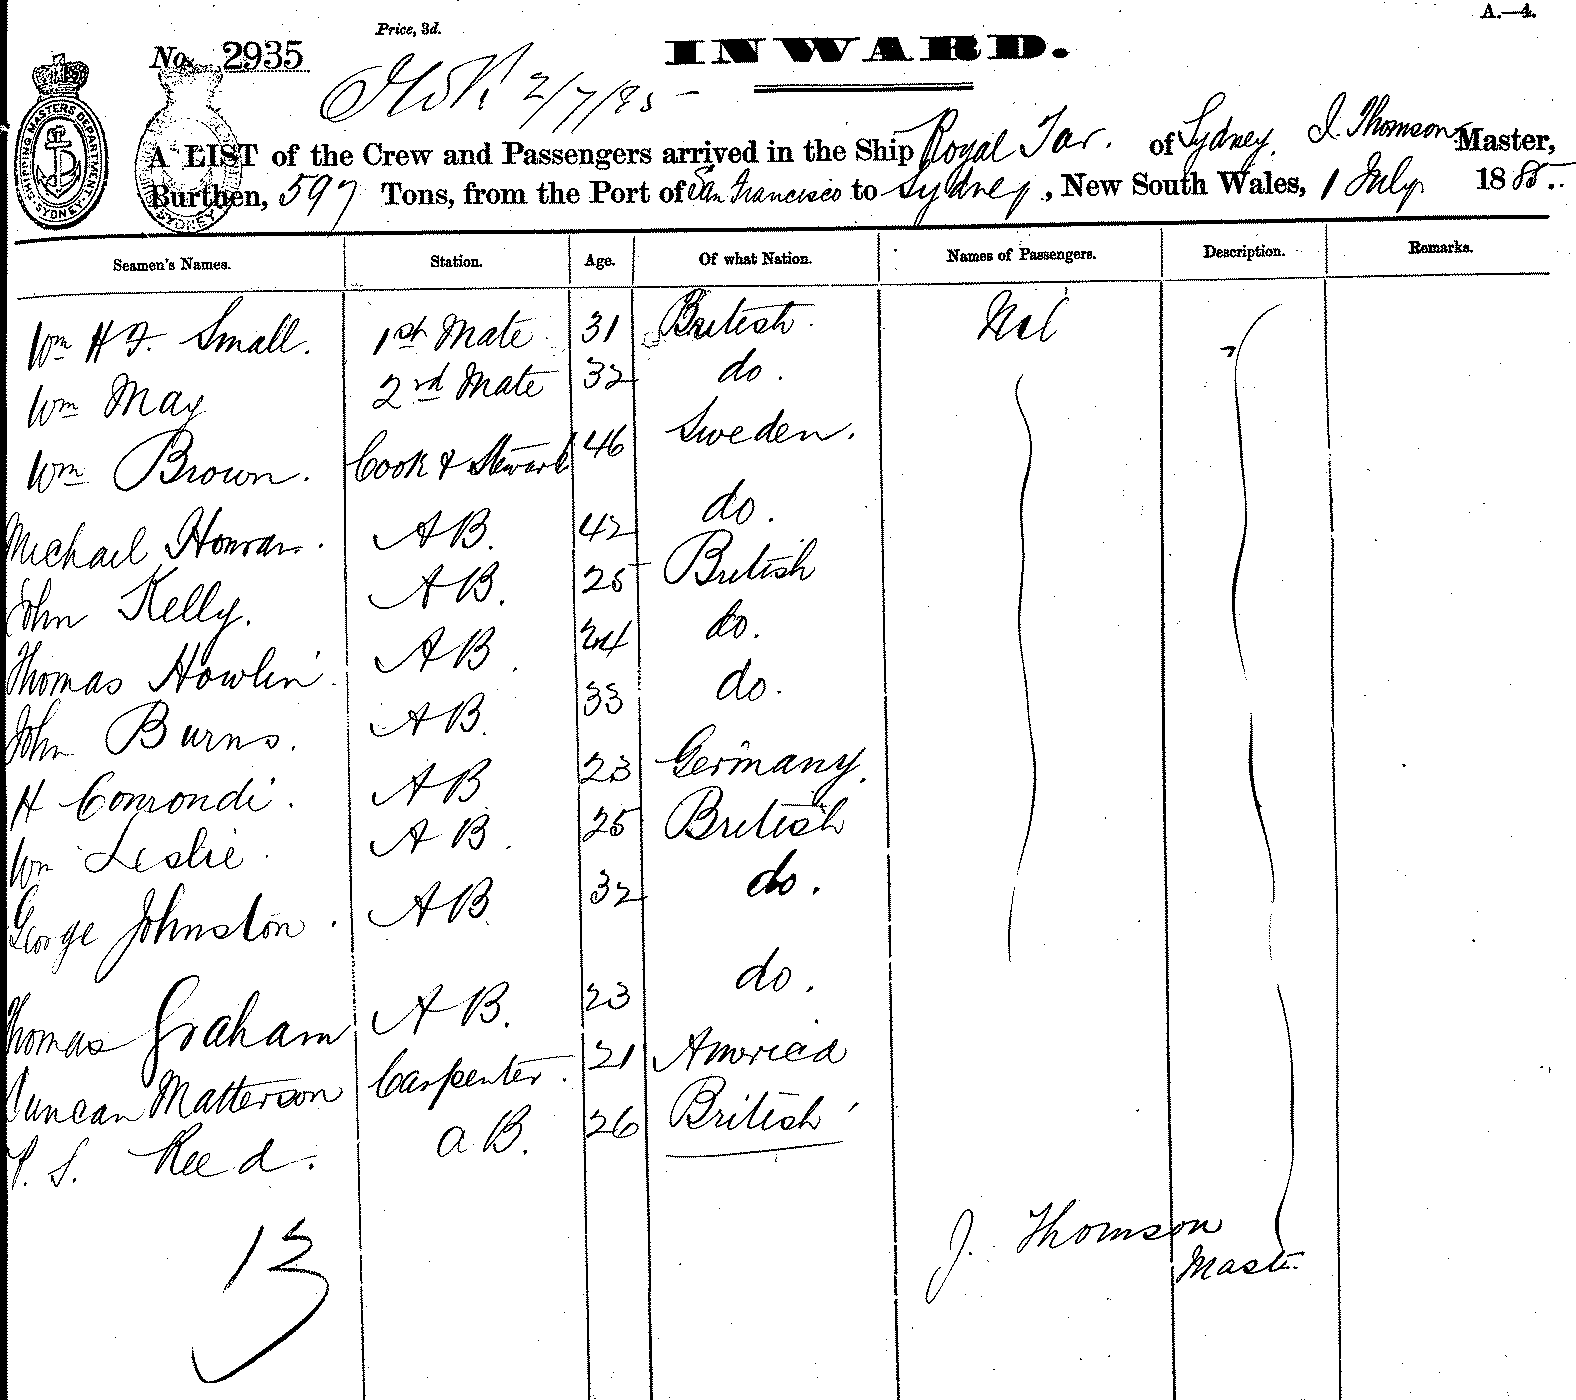 A.—4.
Price, 3d.
No. 2935
INWARD.
2/7/85
A LIST of the Crew and Passengers arrived in the Ship Royal Tar. of Sydney. J. Thomson Master,
Burthen, 597 Tons, from the Port of San Francisco to Sydney, New South Wales, 1 July 1885.
SHIPPING MASTERS DEPARTMENT SYDNEY
SYDNEY
Seamen's Names. Station. Age. Of what Nation. Names of Passengers. Description. Remarks.
Wm H F. Small. 1st Mate 31 British. Nil
Wm May 2nd Mate 32 do.
Wm Brown. Cook & Steward 46 Sweden.
Michael AB. 42 do.
John Kelly. AB. 25 British
Thomas Howlin AB. 24 do.
John Burns. AB. 33 do.
H Conrondi. AB 23 Germany.
Wm Leslie. AB. 25 British
George Johnston. AB. 32 do.
Thomas Graham AB. 23 do.
Duncan Matterson Carpenter. 21 America
S. Reed. a B. 26 British
13
J. Thomson
Mast.